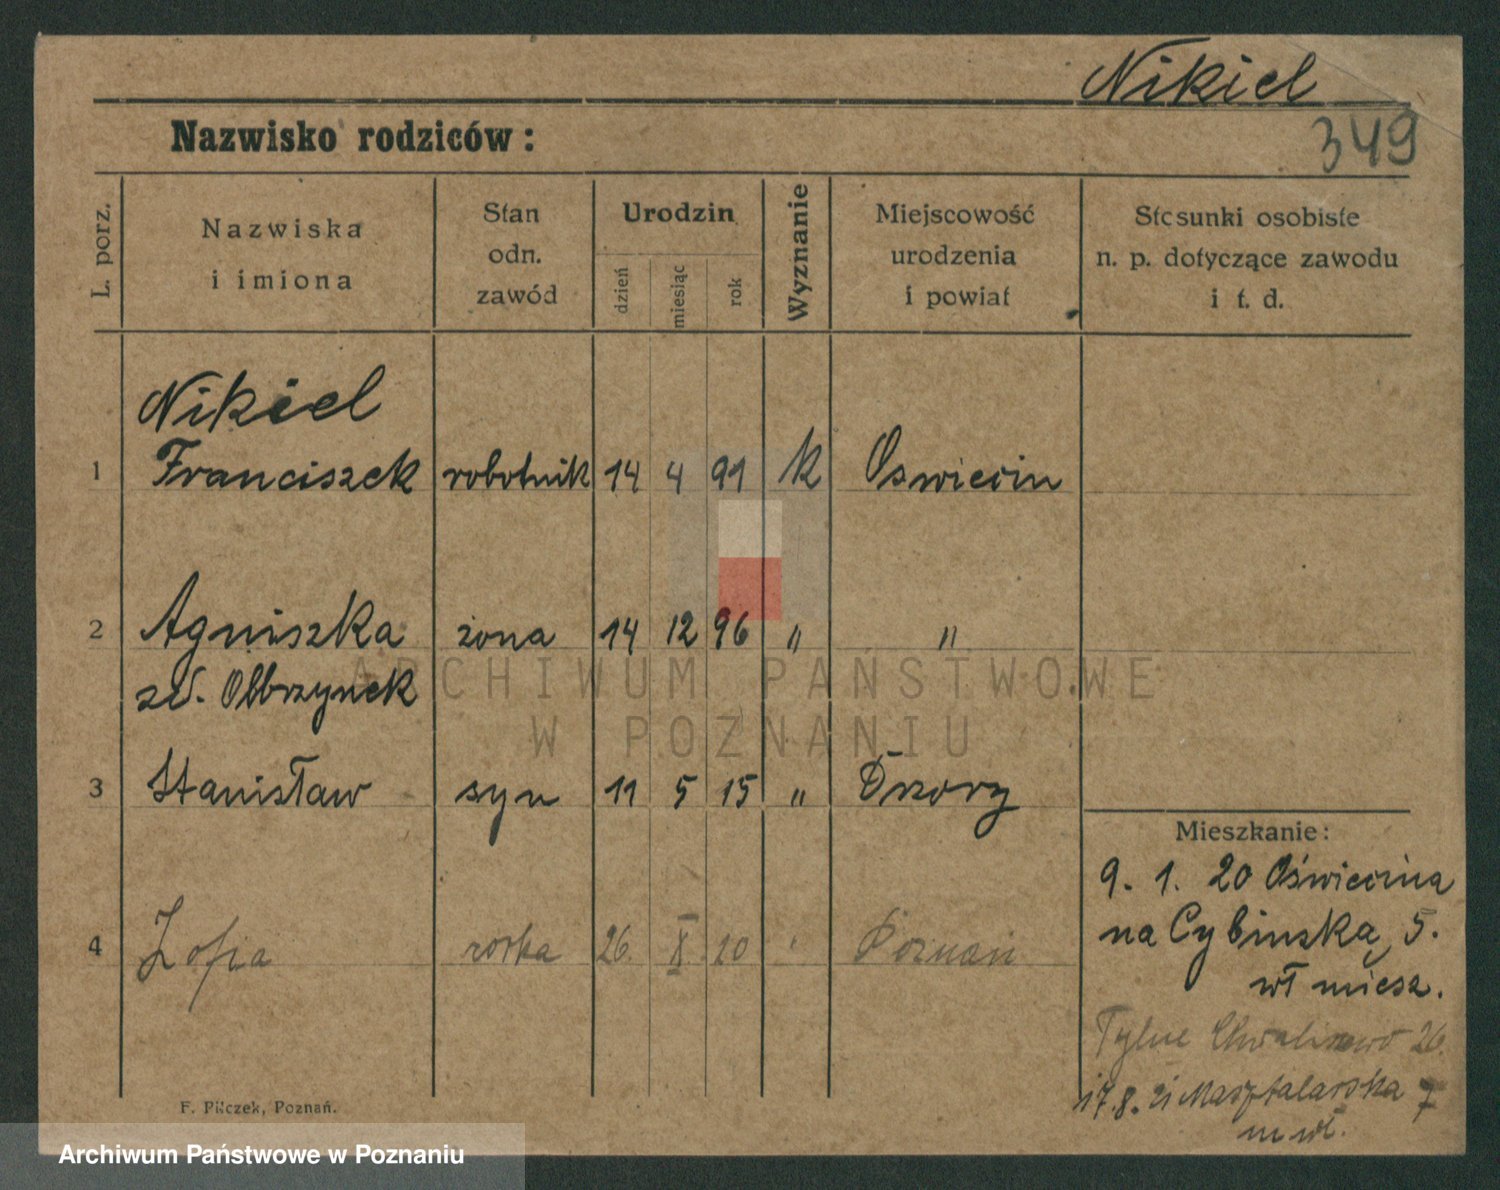 Nikiel
349
Nazwisko rodziców:
L. porz.
Nazwiska
i imiona
Stan
odn.
zawód
Urodzin
dzień
miesiąc
rok
Wyznanie
Miejscowość
urodzenia
i powiat
Stosunki osobiste
n. p. dotyczące zawodu
i t. d.
Nikiel
1 Franciszek robotnik 14 4 91 k Oswiecin
2 Agniszka żona 14 12 96 " "
zd. Olbrzynek
3 Stanisław syn 11 5 15 "
4 Zofia 26. X 20 " Poznań
Mieszkanie:
9. 1. 20 Oświecina
na Cybinską 5.
wł miesz.
Tylne Chwaliszewo 26.
17.8.21 Masztalarska 7
m wł.
F. Pilczek, Poznań.
ARCHIWUM PAŃSTWOWE
W POZNANIU
Archiwum Państwowe w Poznaniu